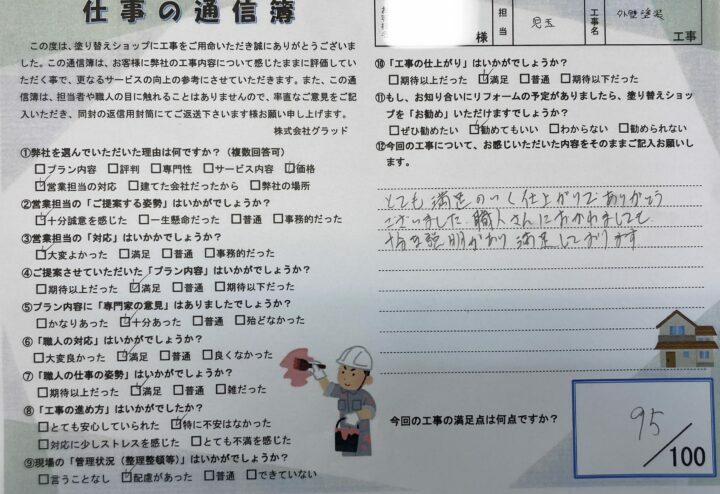 仕事の通信簿
様
担当
児玉
工事名
外壁塗装
工事
この度は、塗り替えショップに工事をご用命いただき誠にありがとうございま
した。この通信簿は、お客様に弊社の工事内容について感じたままに評価してい
ただく事で、更なるサービスの向上の参考にさせていただきます。また、この通
信簿は、担当者や職人の目に触れることはありませんので、率直なご意見をご記
入いただき、同封の返信用封筒にてご返送下さいます様お願い申し上げます。
株式会社グラッド
①弊社を選んでいただいた理由は何ですか？（複数回答可）
□プラン内容 □評判 □専門性 □サービス内容 ☑価格
☑営業担当の対応 □建てた会社だったから □弊社の場所
②営業担当の「ご提案する姿勢」はいかがでしょうか？
☑十分誠意を感じた □一生懸命だった □普通 □事務的だった
③営業担当の「対応」はいかかでしょうか？
☑大変よかった □満足 □普通 □事務的だった
④ご提案させていただいた「プラン内容」はいかがでしょうか？
□期待以上だった ☑満足 □普通 □期待以下だった
⑤プラン内容に「専門家の意見」はありましたでしょうか？
□かなりあった ☑十分あった □普通 □殆どなかった
⑥「職人の対応」はいかがでしょうか？
□大変良かった ☑満足 □普通 □良くなかった
⑦「職人の仕事の姿勢」はいかがでしょうか？
□期待以上だった ☑満足 □普通 □雑だった
⑧「工事の進め方」はいかがでしたか？
□とても安心していられた ☑特に不安はなかった
□対応に少しストレスを感じた □とても不満を感じた
⑨現場の「管理状況（整理整頓等）」はいかがでしょうか？
□言うことなし ☑配慮があった □普通 □できていない
⑩「工事の仕上がり」はいかがでしょうか？
□期待以上だった ☑満足 □普通 □期待以下だった
⑪もし、お知り合いにリフォームの予定がありましたら、塗り替えショッ
プを「お勧め」いただけますでしょうか？
□ぜひ勧めたい ☑勧めてもいい □わからない □勧められない
⑫今回の工事について、お感じいただいた内容をそのままご記入お願いし
ます。
とても満足のいく仕上がりでありがとう
ございました。職人さんにおかれましても
説明があり満足しております
今回の工事の満足点は何点ですか？
95
/100